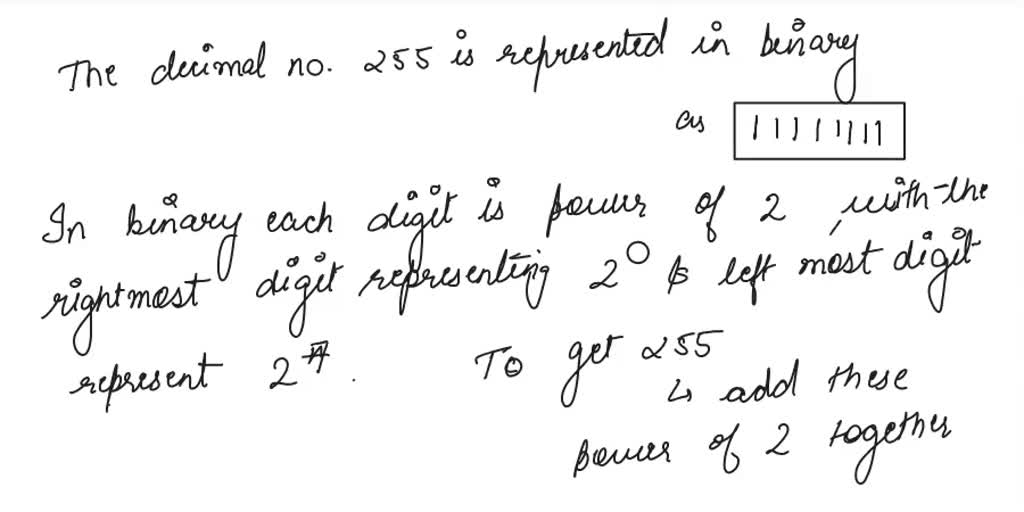 The decimal no. 255 is represented in binary
as 11111111
In binary each digit is power of 2, with the
rightmost digit representing 2⁰ & left most digit
represent 2⁷. To get 255
↳ add these
power of 2 together